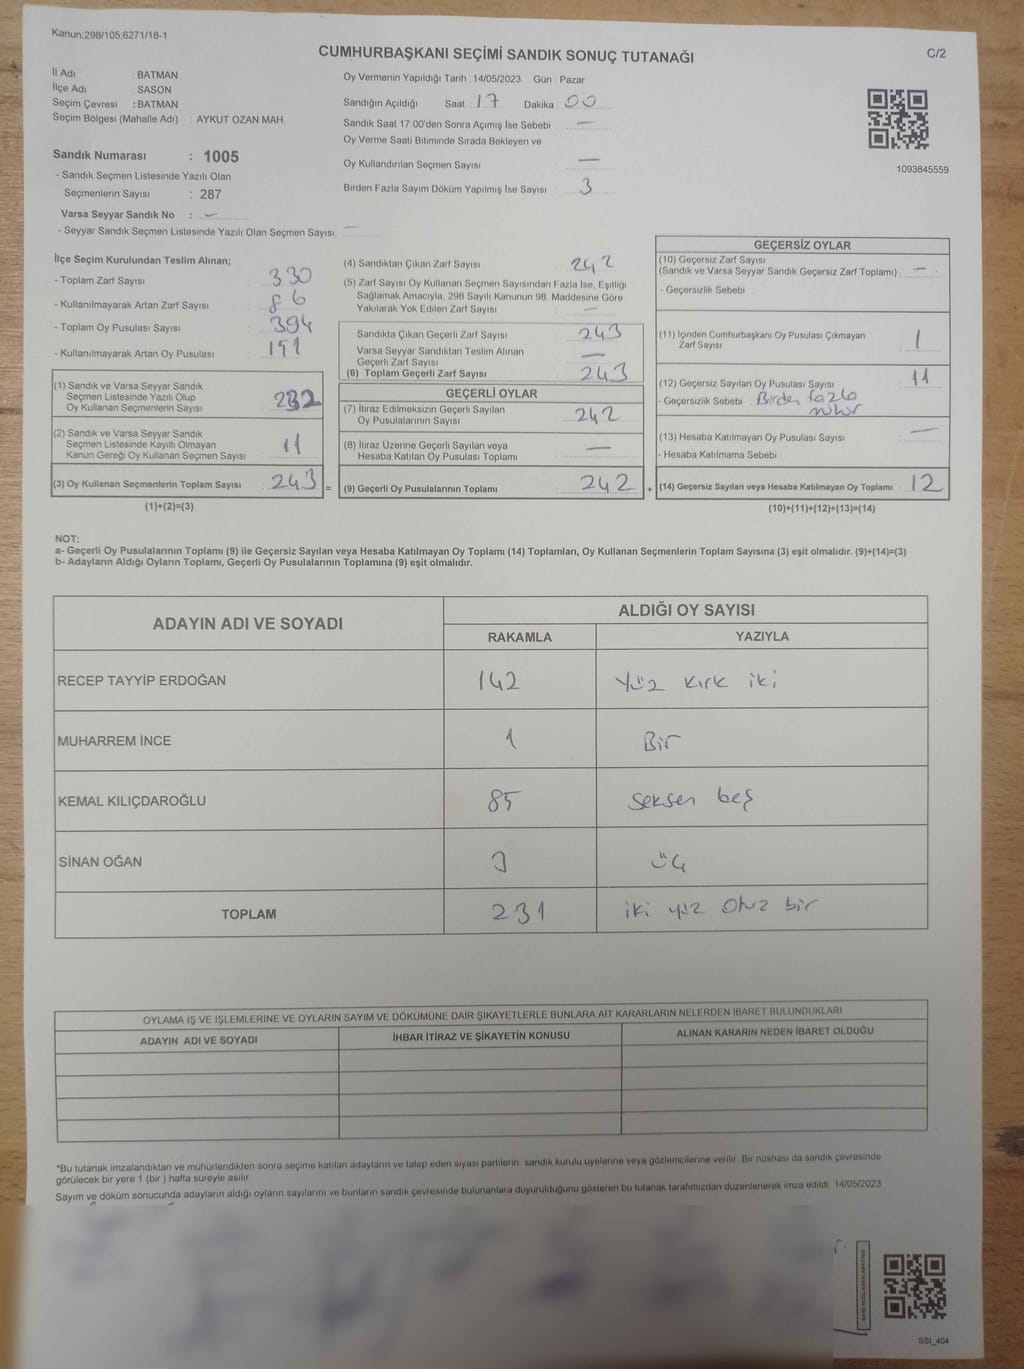 Kanun:298/105,6271/18-1
CUMHURBAŞKANI SEÇİMİ SANDIK SONUÇ TUTANAĞI
C/2
İl Adı : BATMAN
İlçe Adı : SASON
Seçim Çevresi : BATMAN
Seçim Bölgesi (Mahalle Adı) : AYKUT OZAN MAH.
Sandık Numarası : 1005
- Sandık Seçmen Listesinde Yazılı Olan
Seçmenlerin Sayısı : 287
Varsa Seyyar Sandık No : -
- Seyyar Sandık Seçmen Listesinde Yazılı Olan Seçmen Sayısı: -
Oy Vermenin Yapıldığı Tarih :14/05/2023 Gün : Pazar
Sandığın Açıldığı Saat : 17 Dakika : 00
Sandık Saat 17:00'den Sonra Açımış İse Sebebi : -
Oy Verme Saati Bitiminde Sırada Bekleyen ve
Oy Kullandırılan Seçmen Sayısı : -
Birden Fazla Sayım Döküm Yapılmış İse Sayısı : 3
1093845559
İlçe Seçim Kurulundan Teslim Alınan;
- Toplam Zarf Sayısı : 330
- Kullanılmayarak Artan Zarf Sayısı : 86
- Toplam Oy Pusulası Sayısı : 394
- Kullanılmayarak Artan Oy Pusulası : 151
(1) Sandık ve Varsa Seyyar Sandık
Seçmen Listesinde Yazılı Olup
Oy Kullanan Seçmenlerin Sayısı : 232
(2) Sandık ve Varsa Seyyar Sandık
Seçmen Listesinde Kayıtlı Olmayan
Kanun Gereği Oy Kullanan Seçmen Sayısı : 11
(3) Oy Kullanan Seçmenlerin Toplam Sayısı : 243 =
(1)+(2)=(3)
(4) Sandıktan Çıkan Zarf Sayısı : 242
(5) Zarf Sayısı Oy Kullanan Seçmen Sayısından Fazla İse, Eşitliği
Sağlamak Amacıyla, 298 Sayılı Kanunun 98. Maddesine Göre
Yakılarak Yok Edilen Zarf Sayısı : -
Sandıkta Çıkan Geçerli Zarf Sayısı : 243
Varsa Seyyar Sandıktan Teslim Alınan
Geçerli Zarf Sayısı : -
(6) Toplam Geçerli Zarf Sayısı : 243
GEÇERLİ OYLAR
(7) İtiraz Edilmeksizin Geçerli Sayılan
Oy Pusulalarının Sayısı : 242
(8) İtiraz Üzerine Geçerli Sayılan veya
Hesaba Katılan Oy Pusulası Toplamı : -
(9) Geçerli Oy Pusulalarının Toplamı : 242 +
GEÇERSİZ OYLAR
(10) Geçersiz Zarf Sayısı
(Sandık ve Varsa Seyyar Sandık Geçersiz Zarf Toplamı) : -
- Geçersizlik Sebebi :
(11) İçinden Cumhurbaşkanı Oy Pusulası Çıkmayan
Zarf Sayısı : 1
(12) Geçersiz Sayılan Oy Pusulası Sayısı : 11
- Geçersizlik Sebebi : Birden fazla
mühür
(13) Hesaba Katılmayan Oy Pusulası Sayısı : -
- Hesaba Katılmama Sebebi :
(14) Geçersiz Sayılan veya Hesaba Katılmayan Oy Toplamı : 12
(10)+(11)+(12)+(13)=(14)
NOT:
a- Geçerli Oy Pusulalarının Toplamı (9) ile Geçersiz Sayılan veya Hesaba Katılmayan Oy Toplamı (14) Toplamları, Oy Kullanan Seçmenlerin Toplam Sayısına (3) eşit olmalıdır. (9)+(14)=(3)
b- Adayların Aldığı Oyların Toplamı, Geçerli Oy Pusulalarının Toplamına (9) eşit olmalıdır.
ADAYIN ADI VE SOYADI
ALDIĞI OY SAYISI
RAKAMLA YAZIYLA
RECEP TAYYİP ERDOĞAN 142 Yüz kırk iki
MUHARREM İNCE 1 Bir
KEMAL KILIÇDAROĞLU 85 seksen beş
SİNAN OĞAN 3 üç
TOPLAM 231 iki yüz otuz bir
OYLAMA İŞ VE İŞLEMLERİNE VE OYLARIN SAYIM VE DÖKÜMÜNE DAİR ŞİKAYETLERLE BUNLARA AİT KARARLARIN NELERDEN İBARET BULUNDUKLARI
ADAYIN ADI VE SOYADI İHBAR İTİRAZ VE ŞİKAYETİN KONUSU ALINAN KARARIN NEDEN İBARET OLDUĞU
*Bu tutanak imzalandıktan ve mühürlendikten sonra seçime katılan adayların ve talep eden siyasi partilerin sandık kurulu üyelerine veya gözlemcilerine verilir. Bir nüshası da sandık çevresinde
görülecek bir yere 1 (bir ) hafta süreyle asılır.
Sayım ve döküm sonucunda adayların aldığı oyların sayılarını ve bunların sandık çevresinde bulunanlara duyurulduğunu gösteren bu tutanak tarafımızdan düzenlenerek imza edildi. 14/05/2023
SSI_404